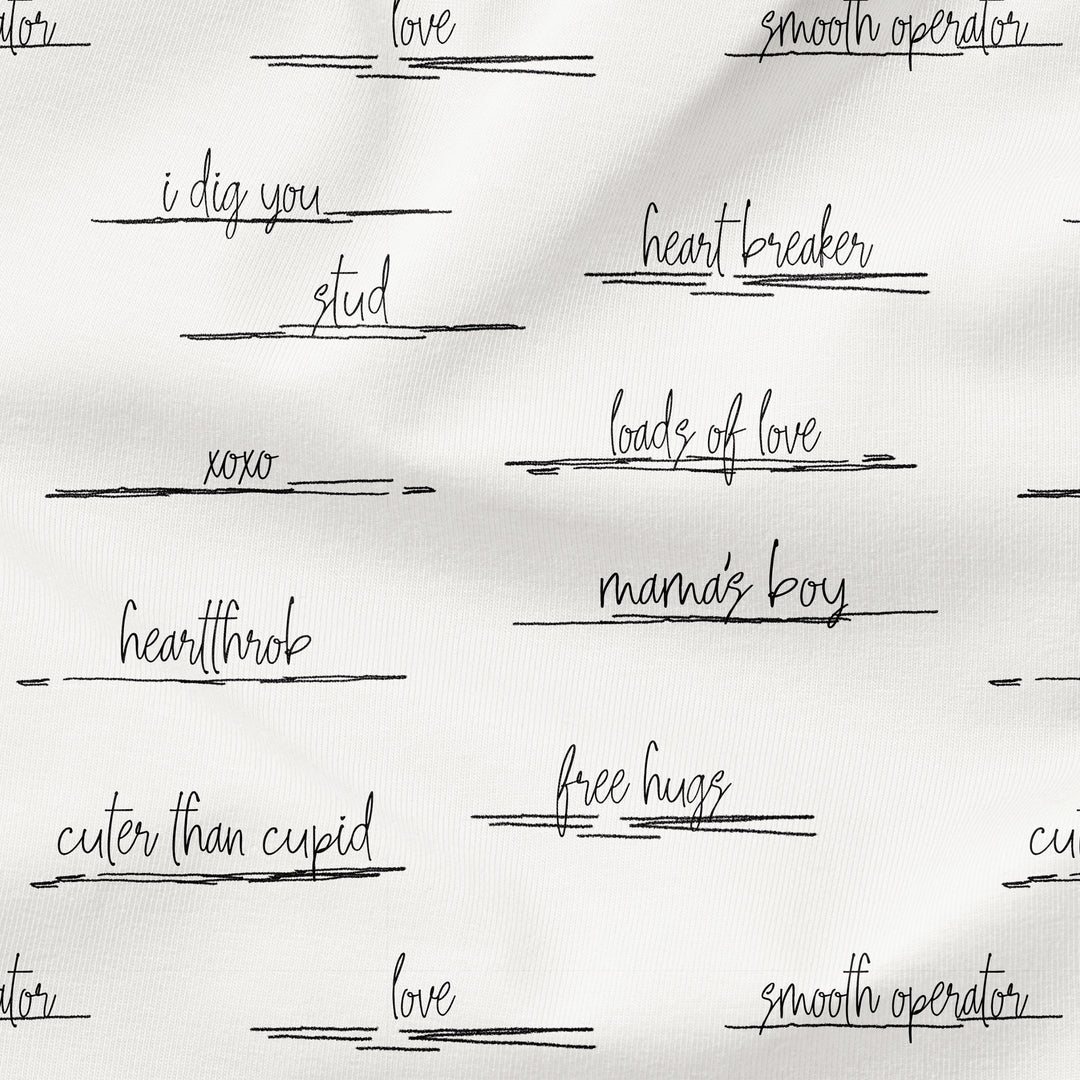 ator
love
smooth operator
i dig you
heart breaker
stud
loads of love
xoxo
mama's boy
heartthrob
free hugs
cuter than cupid
cu
ator
love
smooth operator